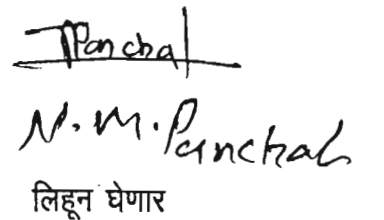 Panchal
N. M. Panchal
लिहून घेणार